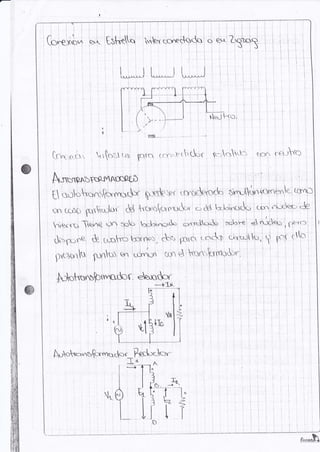 Conexión en Estrella interconectada o en Zigzag
Neutro.
bifásicas para convertidor rotativo con neutro
AUTOTRANSFORMADORES
El autotransformador puede ser considerado simultáneamente como
un caso particular del transformador o del bobinado con núcleo de
hierro. Tiene un solo bobinado arrollado sobre el núcleo, pero
dispone de cuatro bornes, dos para cada circuito, y por ello
presenta puntos en común con el transformador.
Autotransformador elevador
Autotransformador Reductor
A
D